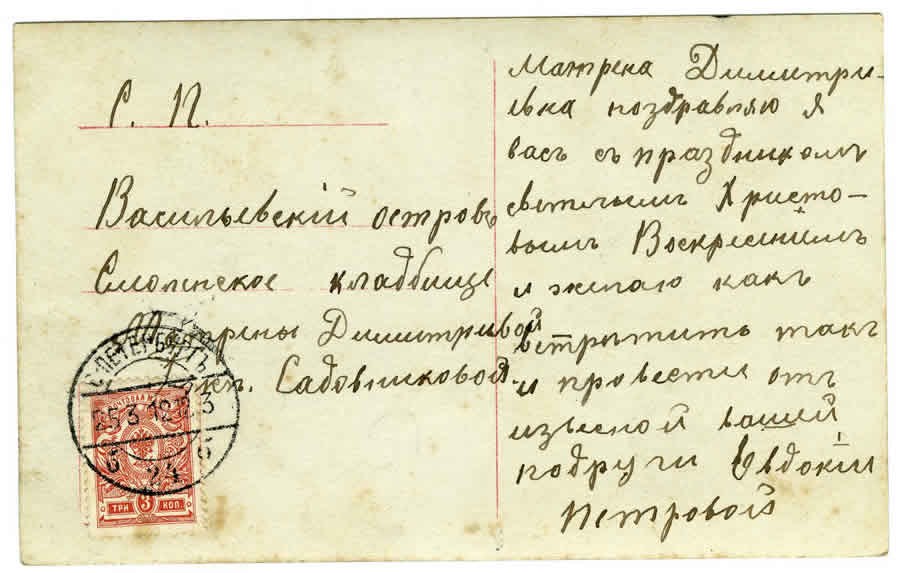 С. П.
Васильевскій островъ
Смоленское кладбище
Димитривой
Садовниковой.
С.ПЕТЕРБУРГЪ
25.3.12
24
ПОЧТОВАЯ
ТРИ 3 КОП.
Матрена Димитри-
евна поздравляю Я
васъ съ праздникомъ
светлымъ Христо-
вымъ Воскресніимъ
и желаю какъ
встретить такъ
и провести отъ
извесной вашей
подруги Евдокіи
Петровой